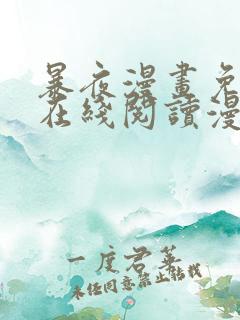 暴夜漫畫免
在綫閱讀漫
一度君華
未經同意禁止轉載